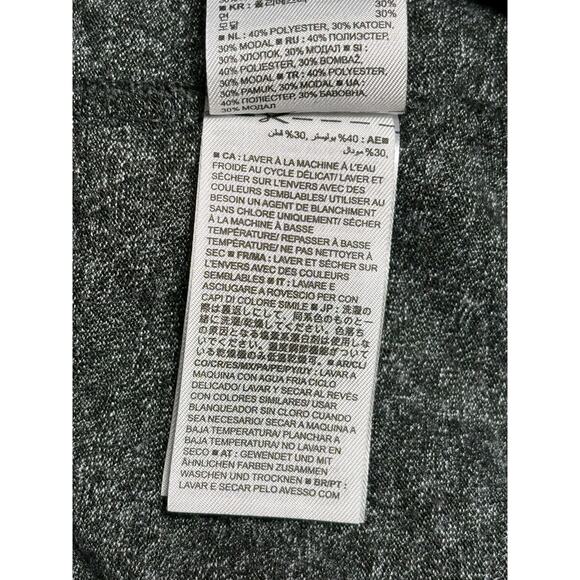 ■ KR : 폴리에스터
30%
면 30%
모달
■ NL : 40% POLYESTER, 30% KATOEN,
30% MODAL ■ RU : 40% ПОЛИЭСТЕР,
30% ХЛОПОК, 30% МОДАЛ ■ SI :
40% POLIESTER, 30% BOMBAŽ,
30% MODAL ■ TR : 40% POLYESTER,
30% PAMUK, 30% MODAL ■ UA :
40% ПОЛІЕСТЕР, 30% БАВОВНА,
30% МОДАЛ
■AE : 40% بوليستر, 30% قطن,
30% مودال
■ CA : LAVER À LA MACHINE À L'EAU
FROIDE AU CYCLE DÉLICAT/ LAVER ET
SÉCHER SUR L'ENVERS AVEC DES
COULEURS SEMBLABLES/ UTILISER AU
BESOIN UN AGENT DE BLANCHIMENT
SANS CHLORE UNIQUEMENT/ SÉCHER
À LA MACHINE À BASSE
TEMPÉRATURE/ REPASSER À BASSE
TEMPÉRATURE/ NE PAS NETTOYER À
SEC ■ FR/MA : LAVER ET SÉCHER SUR
L'ENVERS AVEC DES COULEURS
SEMBLABLES ■ IT : LAVARE E
ASCIUGARE A ROVESCIO PER CON
CAPI DI COLORE SIMILE ■ JP : 洗濯の
際は裏返しにして、同系色のものと一
緒に洗濯/乾燥してください。色落ち
の原因となる塩素系漂白剤は使用しな
いでください。温度調節機能がついて
いる乾燥機のみ低温乾燥可。 ■ AR/CL/
CO/CR/ES/MX/PA/PE/PY/UY : LAVAR A
MAQUINA CON AGUA FRIA CICLO
DELICADO/ LAVAR Y SECAR AL REVÉS
CON COLORES SIMILARES/ USAR
BLANQUEADOR SIN CLORO CUANDO
SEA NECESARIO/ SECAR A MAQUINA A
BAJA TEMPERATURA/ PLANCHAR A
BAJA TEMPERATURA/ NO LAVAR EN
SECO ■ AT : GEWENDET UND MIT
ÄHNLICHEN FARBEN ZUSAMMEN
WASCHEN UND TROCKNEN ■ BR/PT :
LAVAR E SECAR PELO AVESSO COM